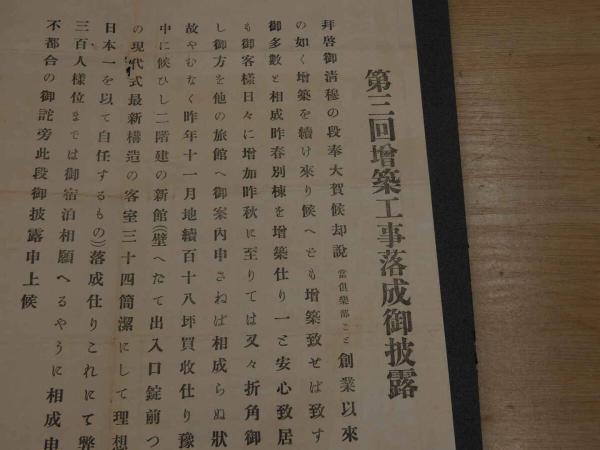 第三回增築工事落成御披露
拜啓御淸穆の段奉大賀候却說當俱樂部こと創業以來
の如く增築を續け來り候へども增築致せば致す
御多數と相成昨春別棟を增築仕り一と安心致居
も御客樣日々に增加昨秋に至りては又々折角御
し御方を他の旅館へ御案內申さねば相成らぬ狀
故やむなく昨年十一月地續百十八坪買收仕り豫
中に候ひし二階建の新館(壁へだて出入口錠前つ
の現代式最新構造の客室三十四簡潔にして理想
日本一を以て自任するもの)落成仕りこれにて弊
三百人樣位までは御宿泊相願へるやうに相成申
不都合の御詫旁此段御披露申上候